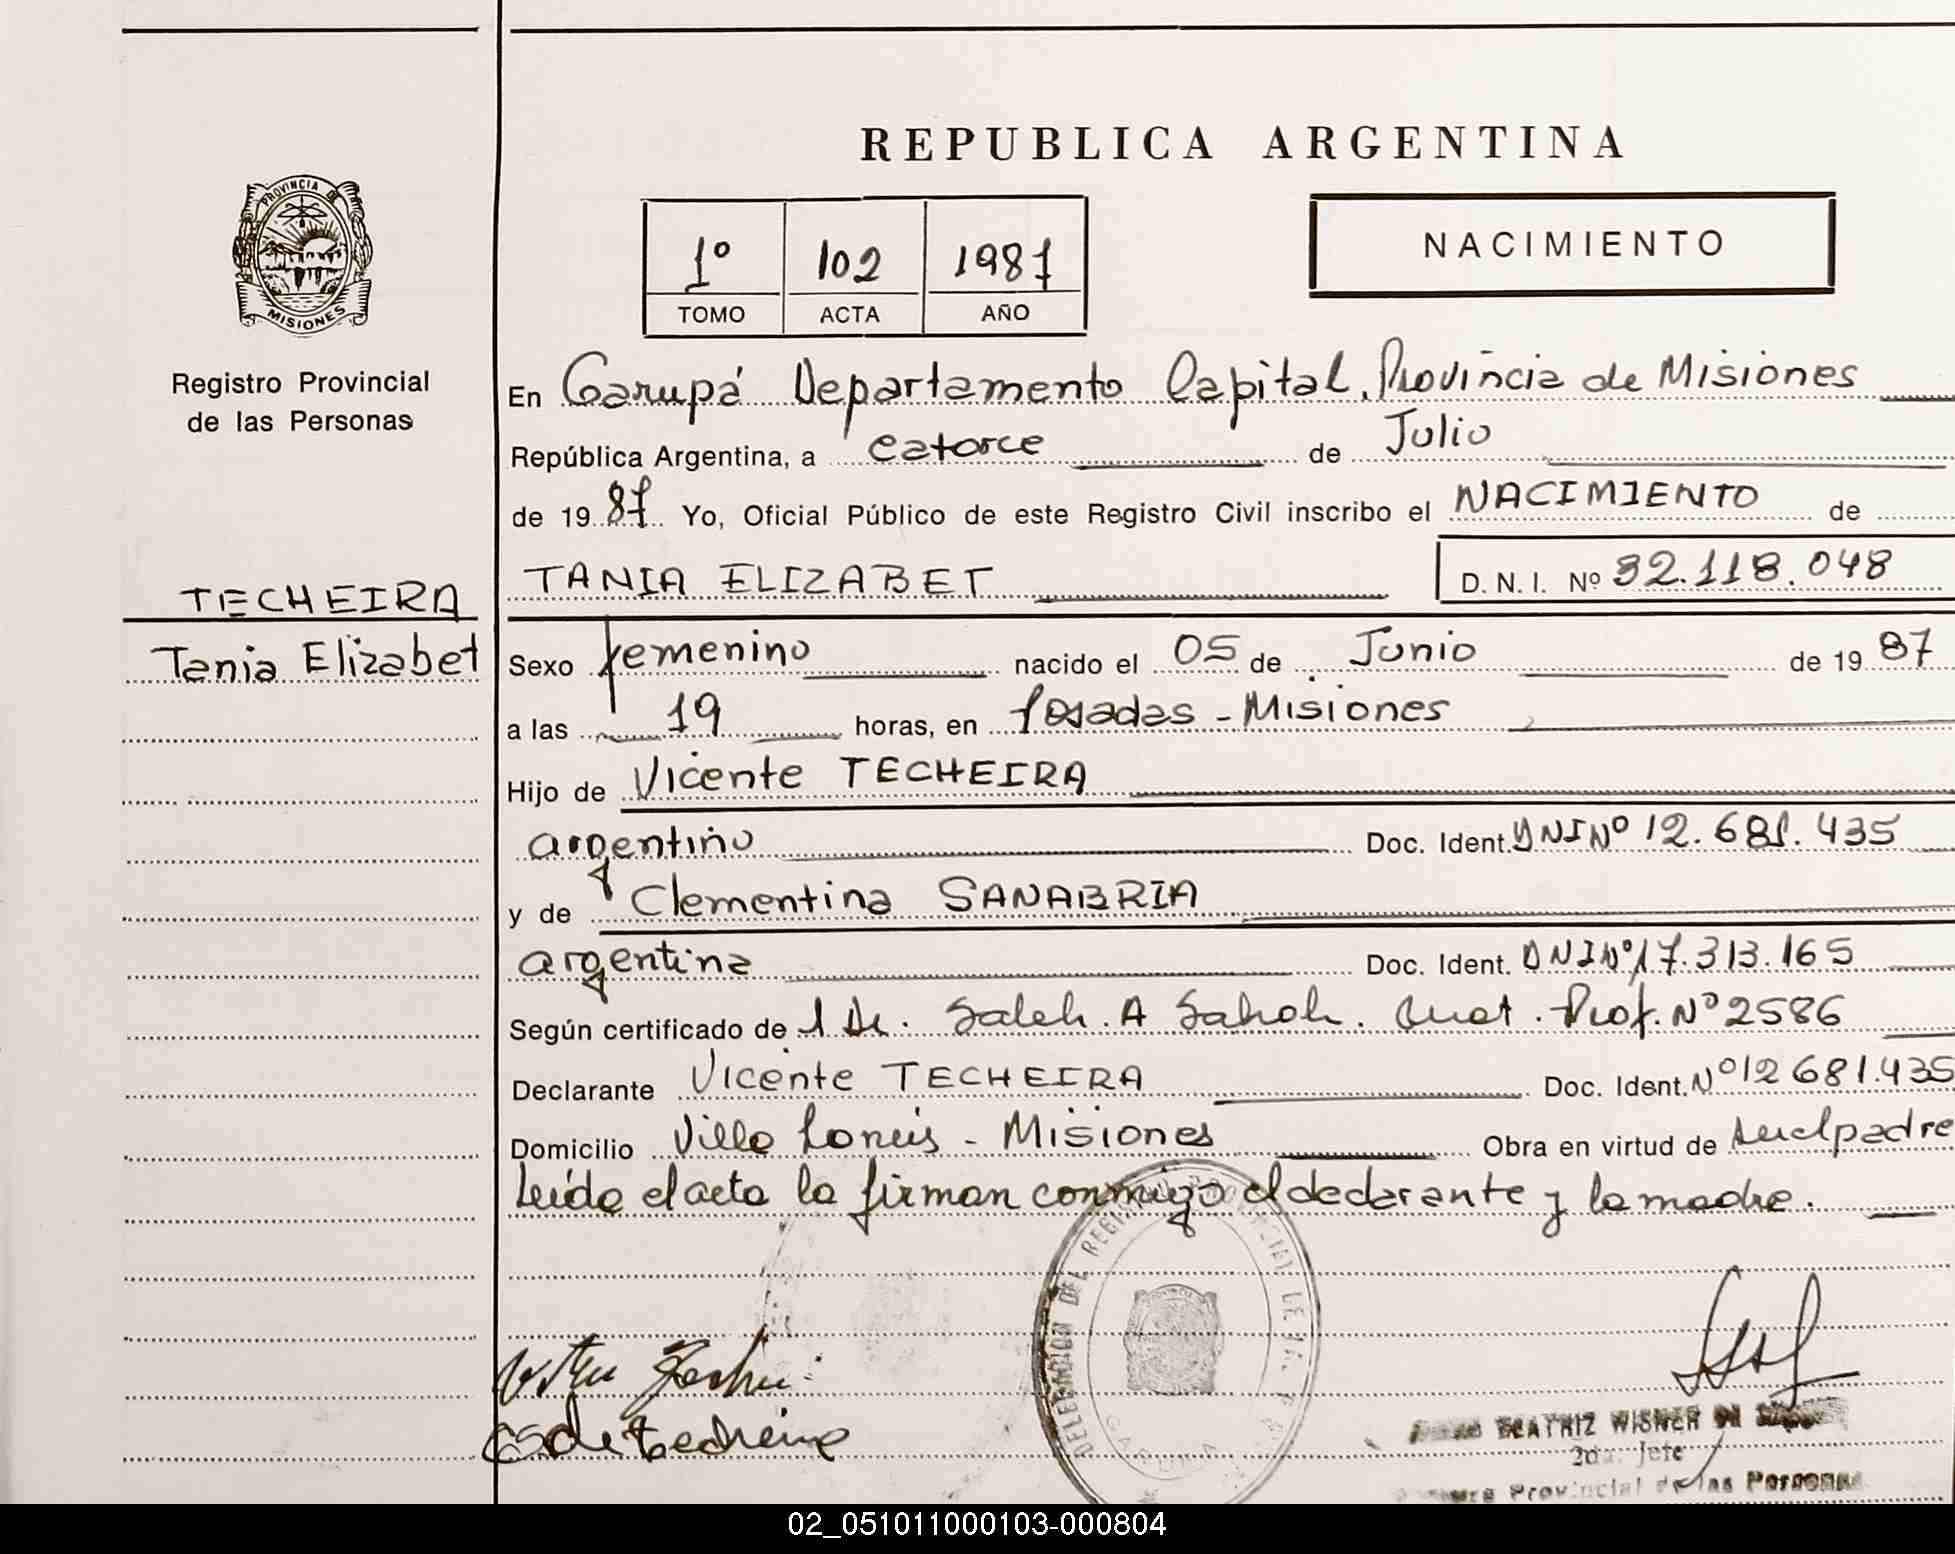 REPUBLICA ARGENTINA
PROVINCIA DE
MISIONES
Registro Provincial
de las Personas
1º 102 1987
TOMO ACTA AÑO
NACIMIENTO
En Garupá Departamento Capital, Provincia de Misiones
República Argentina, a catorce de Julio
de 19 87 Yo, Oficial Público de este Registro Civil inscribo el NACIMIENTO de
TECHEIRA
TANIA ELIZABET D. N. I. Nº 32.118.048
Tania Elizabet
Sexo femenino nacido el 05 de Junio de 19 87
a las 19 horas, en Posadas - Misiones
Hijo de Vicente TECHEIRA
argentino Doc. Ident. DNI Nº 12.681.435
y de Clementina SANABRIA
argentina Doc. Ident. DNI Nº 17.313.165
Según certificado de Dr. Saleh. A Prof. Nº 2586
Declarante Vicente TECHEIRA Doc. Ident. Nº 12 681.435
Domicilio Villa Lanús - Misiones Obra en virtud de padre
Leída el acta la firman conmigo el declarante y la madre.
DELEGACION DEL REGISTRO PROVINCIAL DE LAS
GARUPA
BEATRIZ WISNER DE
2da. Jefe
Provincial de las Personas
02_051011000103-000804